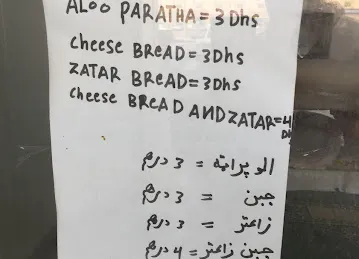 ALOO PARATHA = 3 Dhs
cheese BREAD = 3Dhs
ZATAR BREAD = 3Dhs
cheese BREAD AND ZATAR = 4
Dh
الو براته = 3 درهم
جبن = 3 درهم
زاعتر = 3 درهم
جبن زاعتر = 4 درهم